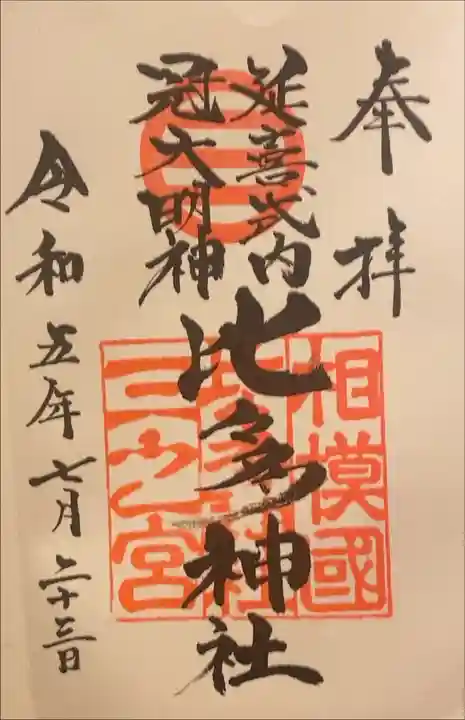 奉拝
延喜式内
冠大明神
比々多神社
令和五年七月二十三日
相模國
三之宮